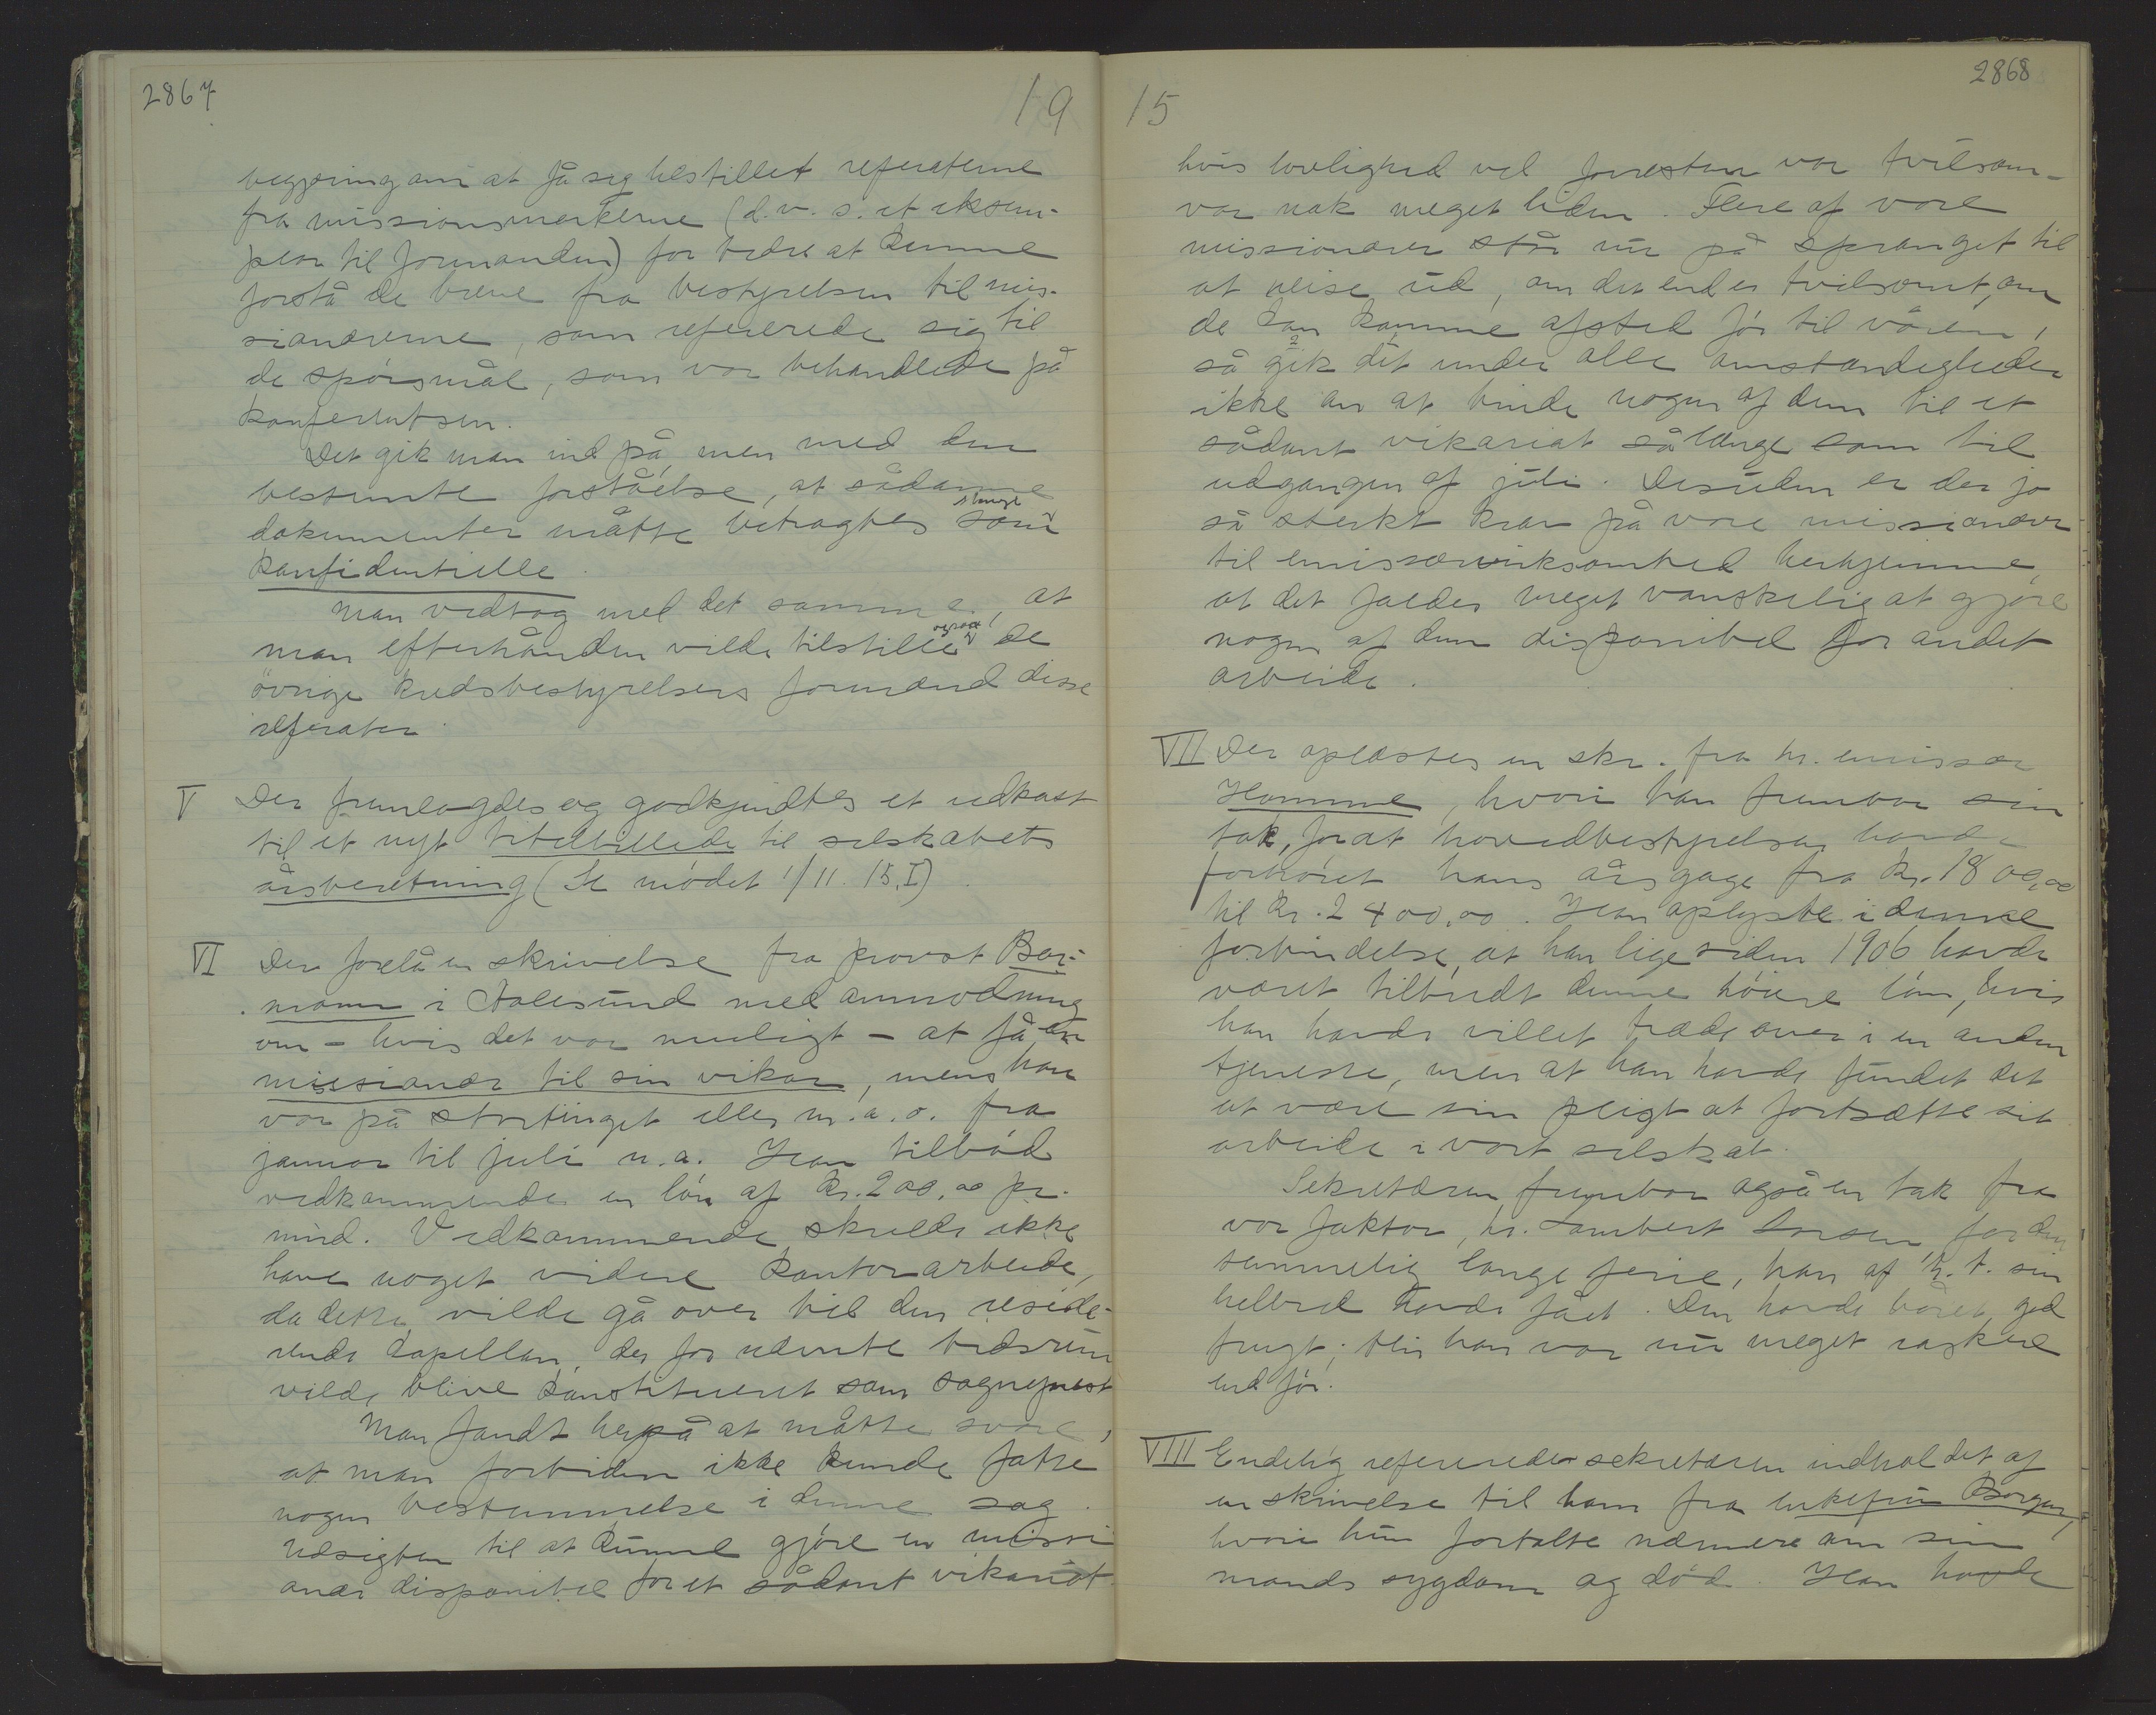 2867
19
begjæring om at få sig tilstillet referaterne
fra missionsmarkerne (d.v.s. et eksem-
plar til formanden) for bedre at kunne
forstå de breve fra bestyrelsen til mis-
sionærerne, som refererede sig til
de spörsmål, som var behandlede på
konferentsen.
Det gik man ind på, men med den
bestemte forståelse, at sådanne
dokumenter måtte betragtes strengt som
konfidentielle.
Man vedtog med det samme, at
man efterhånden vilde tilstille også de
övrige kredsbestyrelsers formænd disse
referater.
V Der fremlagdes og godkjendtes et udkast
til et nyt titelbillede til selskabets
årsberetning (Se mödet 1/11. 15, I).
VI Der forelå en skrivelse fra provst Bar-
mann i Aalesund med anmodning
om – hvis det var muligt – at få en
missionær til sin vikar, mens han
var på stortinget eller m.a.o. fra
januar til juli n.a. Han tilböd
vedkommende en lön af kr. 200,00 pr.
mnd. Vedkommende skulde ikke
have noget videre kontorarbeide,
da dette vilde gå over til den reside-
rende kapellan, der for nævnte tidsrum
vilde blive konstitueret som sogneprest
Man fandt herpå at måtte svare,
at man forbiden ikke kunde fatte
nogen bestemmelse i denne sag.
Udsigten til at kunne gjöre en missi
onær disponibel for et sådant vikariat
15
2868
hvis lovlighed vel forresten var tvilsom –
var nok meget liden. Flere af vore
missionærer står nu på spranget til
at reise ud, om det end er tvilsomt, om
de kan komme afsted för til våren;
så gik det under alle omstændigheder
ikke an at binde nogen af dem til et
sådant vikariat sålænge som til
udgangen af juli. Desuden er der jo
så sterkt krav på vore missionærer
til emissærvirksomhed herhjemme,
at det falder meget vanskelig at gjöre
nogen af dem disponibel for andet
arbeide.
VII Der oplæstes en skr. fra hr. emissær
Homme, hvori han frembar sin
tak, for at hovedbestyrelsen havde
forhöiet hans årsgage fra kr. 1800,00
til kr. 2400,00. Han oplyste i denne
forbindelse, at han lige siden 1906 havde
været tilbudt denne höiere lön, hvis
han havde villet træde over i en anden
tjeneste, men at han havde fundet det
at være sin pligt at fortsætte sit
arbeide i vort selskab.
Sekretæren frembar også en tak fra
vor faktor, hr. Lambert Larsen, for den
temmelig lange ferie, han af h. t. sin
helbred havde fået. Den havde båret god
frugt; thi han var nu meget raskere
end för.
VIII Endelig refererede sekretæren indholdet af
en skrivelse til ham fra enkefru Borgen,
hvori hun fortalte nærmere om sin
mands sygdom og död. Han havde